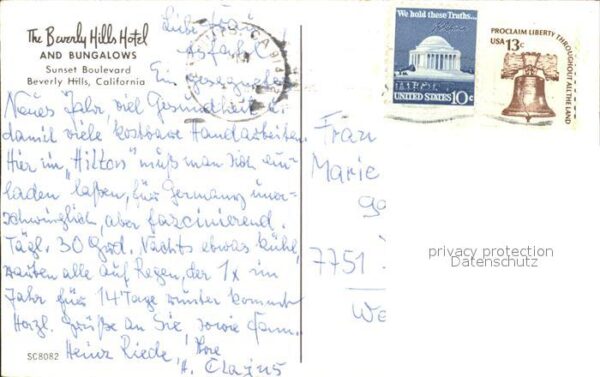 The Beverly Hills Hotel
AND BUNGALOWS
Sunset Boulevard
Beverly Hills, California
Liebe Frau
Ein gesegnetes
Neues Jahr, viel Gesundheit &
damit viele kostbare Handarbeiten.
Hier im "Hilton" muß man sich ein-
laden laßen, für Germans uner-
schwinglich, aber faszinierend.
Tägl. 30 Grd. Nachts etwas kühl,
warten alle auf Regen, der 1x im
Jahr für 14 Tage runter kommt
Herzl. Grüße an Sie, sowie Fam.
Heinz Riede, Ihre
H. Clajus
SC8082
We hold these Truths...
UNITED STATES 10c
PROCLAIM LIBERTY THROUGHOUT ALL THE LAND
USA 13c
Frau
Marie
7751
We
privacy protection
Datenschutz